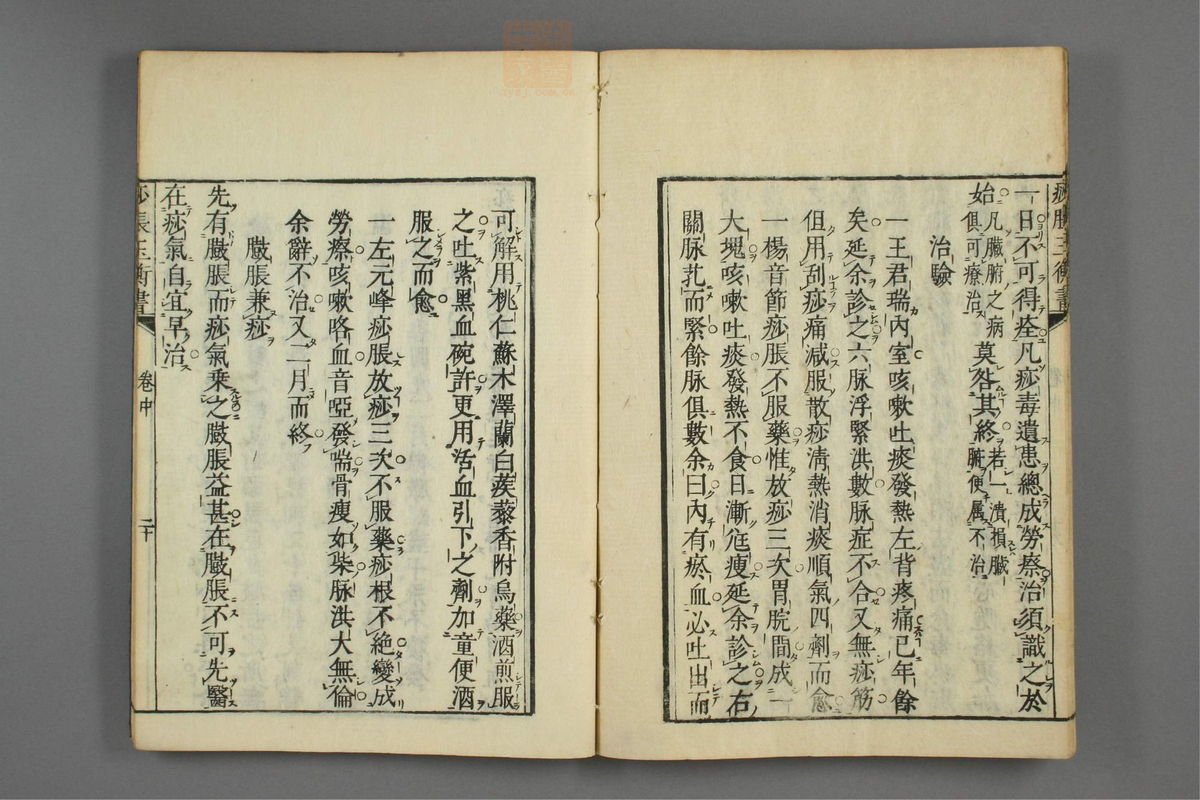 痧脹玉衡書
一日不可得痊凡痧毒遺患總成勞瘵治須識之於
始凡臟腑之病俱可療治莫咎其終若一潰損臟腑便属不治
治驗
一王君瑞內室咳嗽吐痰發熱左背疼痛已年餘
矣延余診之六脉浮緊洪數脉症不合又無痧筋
但用刮痧痛減服散痧淸熱消痰順氣四劑而愈
一楊音節痧脹不服藥惟放痧三次胃脘間成一
大塊咳嗽吐痰發熱不食日漸尫痩延余診之右
關脉芤而緊餘脉俱數余曰內有瘀血必吐出而
可解用桃仁蘇木澤蘭白蒺藜香附烏藥酒煎服
之吐紫黑血碗許更用活血引下之劑加童便酒
服之而愈
一左元峰痧脹放痧三次不服藥痧根不絶變成
勞瘵咳嗽咯血音啞發喘骨瘦如柴脉洪大無倫
余辭不治又二月而終
臌脹兼痧
先有臌脹而痧氣乗之臌脹益甚在臌脹不可先醫
在痧氣自宜早治
痧脹玉衡書
卷中
二十